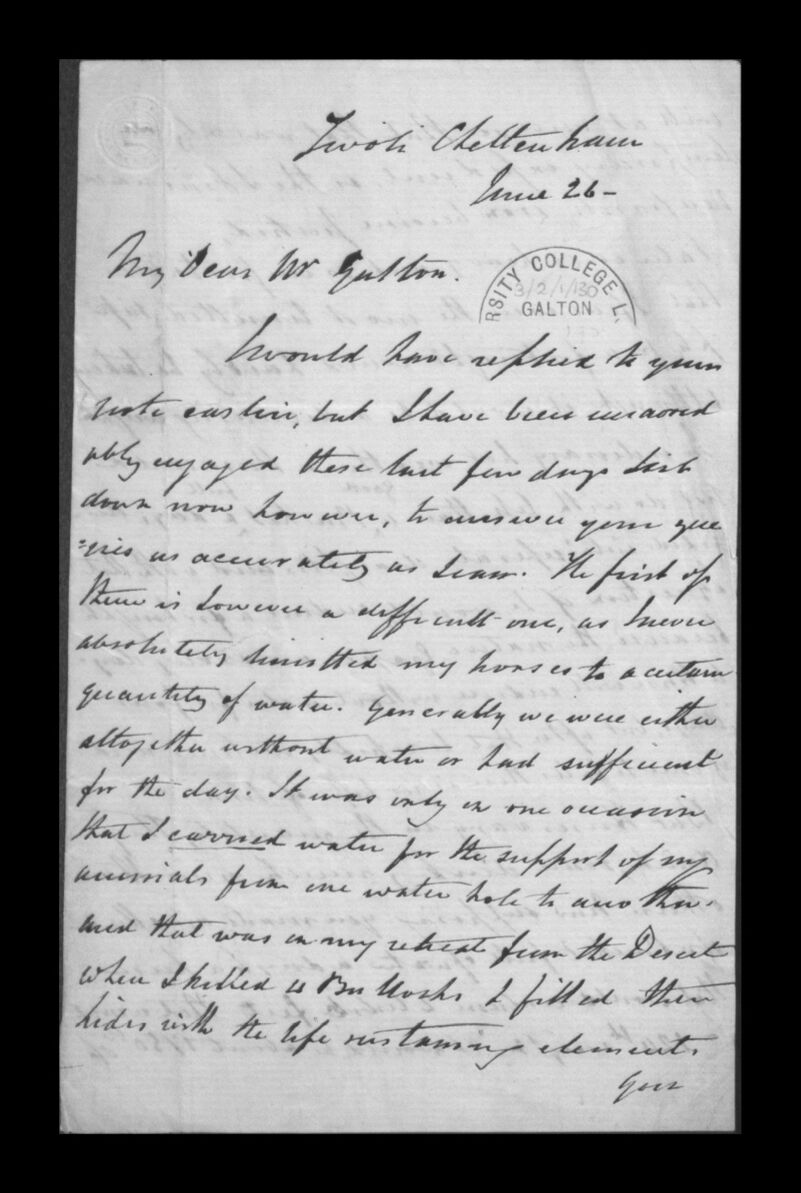 Tivoli Cheltenham
June 26-
My Dear Mr Galton.
RSITY COLLEGE L.
3/2/1/130
GALTON
I would have replied to your
note earlier, but I have been unavoid
ably engaged these last few days I sit
down now however, to answer your que
=ries as accurately as I can. The first of
them is however a difficult one, as I never
absolutely limitted my horses to a certain
quantity of water. Generally we were either
altogether without water or had sufficient
for the day. It was only on one occasion
that I carried water for the support of my
animals from one water hole to another.
and that was on my retreat from the Desert
when I killed 4 Bullocks & filled their
hides with the life sustaining element.
Your